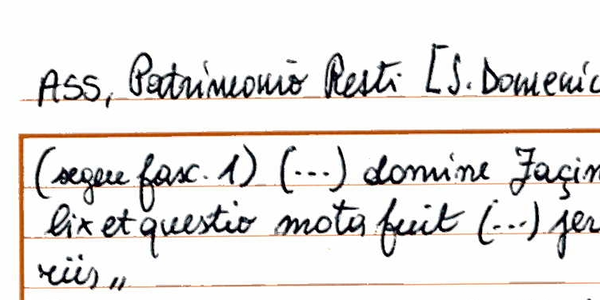 ASS, Patrimonio Resti [S. Domenic
(segue fasc. 1) (...) domine Jaçin
lix et questio mota fuit (...) fer
riis„